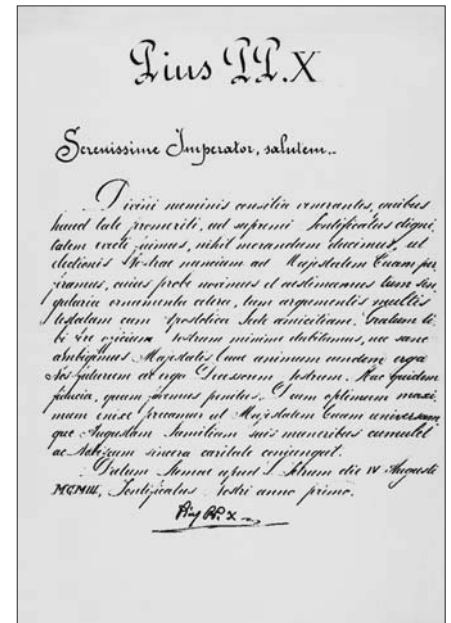 Pius PP. X
Serenissime Imperator, salutem..
Divini numinis consilia venerantes, quibus
haud tale promeriti, ad supremi Pontificatus digni
tatem evecti fuimus, nihil morandum ducimus, ut
electionis Nostrae nuncium ad Majestatem Tuam per
feramus, cuius probe novimus et aestimamus tum sin
gularia ornamenta cetera, tum argumentis multis
testatam cum Apostolica Sede amicitiam. Gratum ti
bi fore nostrum minime dubitamus, nec sane
ambigimus Majestatis Tuae animum eundem erga
Nos futurum ac erga Decessorem Nostrum. Hac quidem
fiducia, quam fovemus penitus, Deum optimum maxi
mum enixe precamur ut Majestatem Tuam universam
que Augustam Familiam suis muneribus cumulet
ac Nobiscum sincera caritate conjungat.
Datum Romae apud S. Petrum die IV Augusti
MCMIII, Pontificatus Nostri anno primo.
Pius PP. X